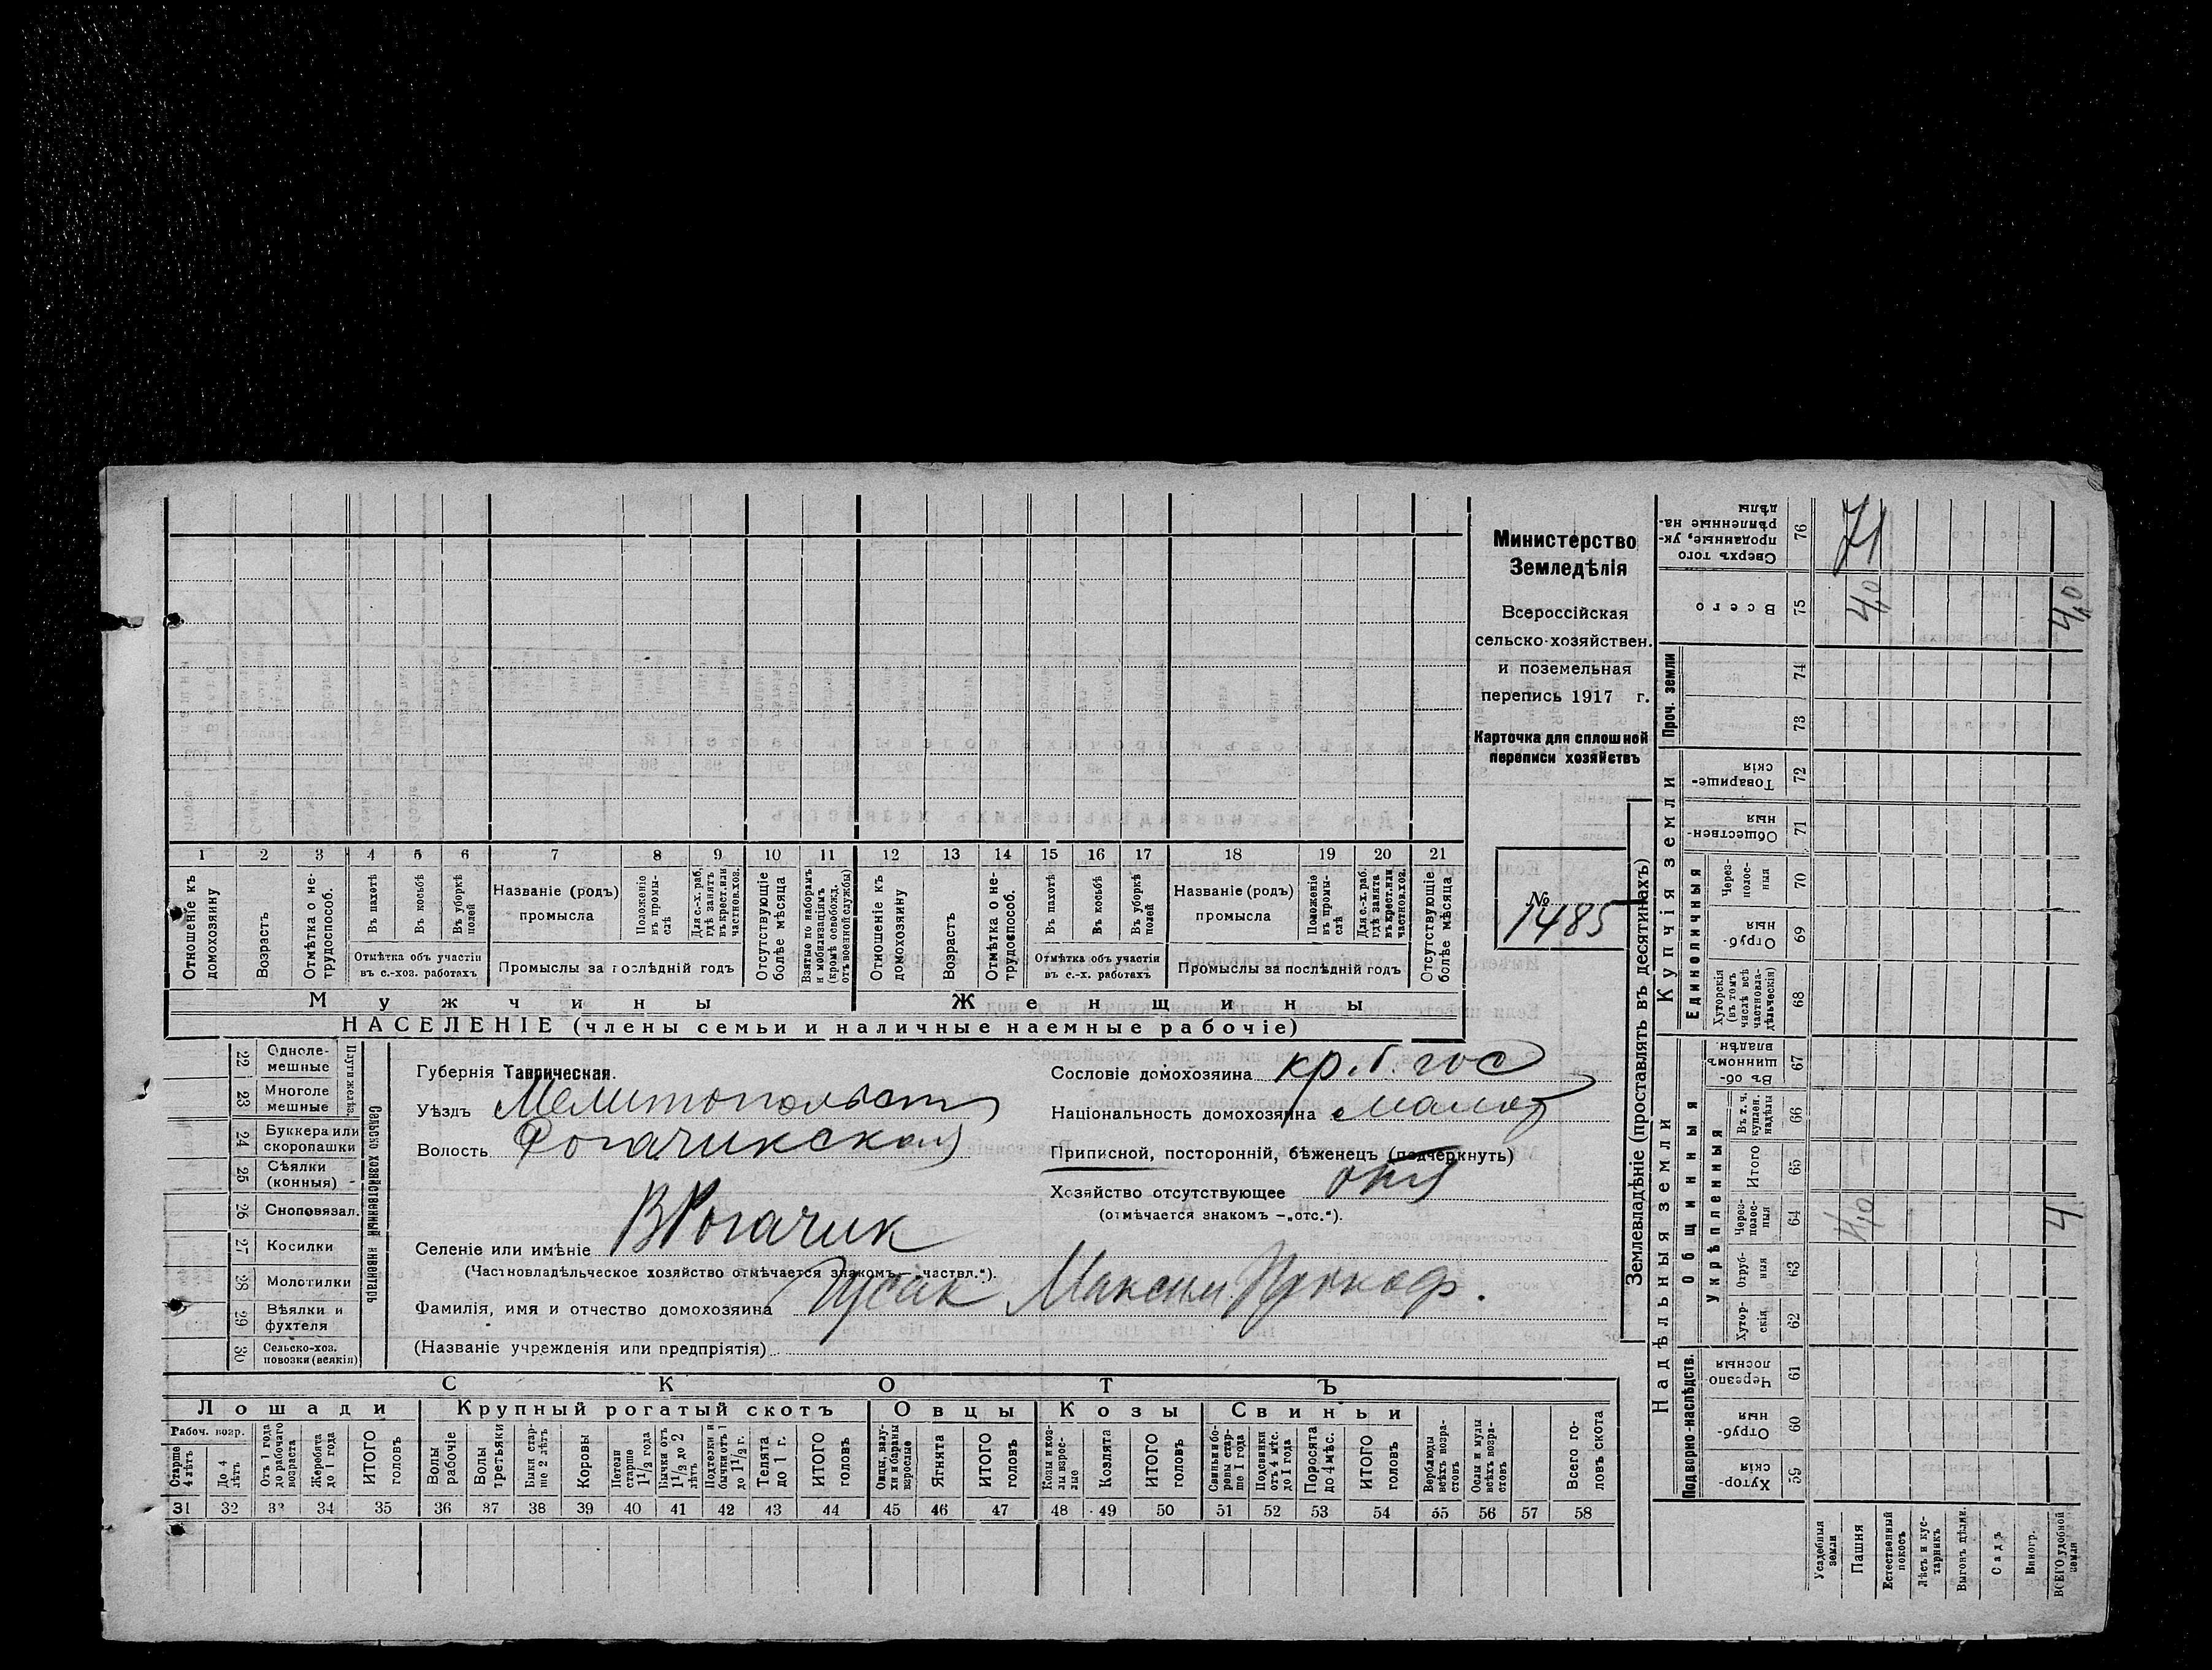 Министерство
Земледѣлія
Всероссійская
сельско-хозяйствен.
и поземельная
перепись 1917 г.
Карточка для сплошной
переписи хозяйствъ
№
1485
1 2 3 4 5 6 7 8 9 10 11 12 13 14 15 16 17 18 19 20 21
Отношеніе къ домохозяину
Возрастъ
Отмѣтка о не-трудоспособ.
Въ пахотѣ
Въ косьбѣ
Въ уборкѣ полей
Отмѣтка объ участіи
въ с.-хоз. работахъ
Названіе (родъ)
промысла
Положеніе въ промы-слѣ
Для с.-х. раб. гдѣ занятъ въ крест. или частнов. хоз.
Промыслы за послѣдній годъ
Отсутствующіе болѣе мѣсяца
Взятые по наборамъ и мобилизаціямъ (кромѣ освобожд. отъ военной службы)
Отношеніе къ домохозяину
Возрастъ
Отмѣтка о не-трудоспособ.
Въ пахотѣ
Въ косьбѣ
Въ уборкѣ полей
Отмѣтка объ участіи
въ с.-х. работахъ
Названіе (родъ)
промысла
Положеніе въ промы-слѣ
Для с.-х. раб. гдѣ занята въ крест. или частнов. хоз.
Промыслы за послѣдній годъ
Отсутствующіе болѣе мѣсяца
Мужчины Женщины
НАСЕЛЕНІЕ (члены семьи и наличные наемные рабочіе)
22 Одноле-мешные
23 Многоле мешные
Плуги желѣз.
24 Буккера или скоропашки
25 Сѣялки (конныя)
26 Сноповязал.
27 Косилки
28 Молотилки
29 Вѣялки и фухтеля
30 Сельско-хоз. повозки (всякія)
Сельско хозяйственный инвентарь
Губернія Таврическая.
Уѣздъ Мелитопольск
Волость Рогачикская
Селеніе или имѣніе В Рогачик
(Частновладѣльческое хозяйство отмѣчается знакомъ — частвл.“).
Фамилія, имя и отчество домохозяина Гусак Максим Прокоф.
(Названіе учрежденія или предпріятія)
Сословіе домохозяина кр. б. гос
Національность домохозяина малор
Приписной, посторонній, бѣженецъ (подчеркнуть)
Хозяйство отсутствующее
(отмѣчается знакомъ — „отс.“).
СКОТЪ
Лошади Крупный рогатый скотъ Овцы Козы Свиньи
Рабоч. возр.
Старше 4 лѣтъ
До 4 лѣтъ
Отъ 1 года до рабочаго возраста
Жеребята до 1 года
ИТОГО головъ
Волы рабочіе
Волы третьяки
Быки стар-ше 2 лѣтъ
Коровы
Нетели старше 1½ года
Бычки отъ 1½ до 2 лѣтъ
Подтелки и бычки отъ 1 до 1½ г.
Телята до 1 г.
ИТОГО головъ
Овцы, валу-хи и бараны взрослые
Ягнята
ИТОГО головъ
Козы и коз-лы взрос-лые
Козлята
ИТОГО головъ
Свиньи и бо-ровы стар-ше 1 года
Подсвинки отъ 4 мѣс. до 1 года
Поросята до 4 мѣс.
ИТОГО головъ
Верблюды всѣхъ возра-стовъ
Ослы и мулы всѣхъ возра-стовъ
Всего го-ловъ скота
31 32 33 34 35 36 37 38 39 40 41 42 43 44 45 46 47 48 49 50 51 52 53 54 55 56 57 58
Землевладѣніе (проставлять въ десятинахъ)
Надѣльныя земли Купчія земли Проч. земли
Подворно-наслѣдств.
Общинныя
Укрѣпленныя
Единоличныя
Хутор-скія 59
Отруб-ныя 60
Черезпо-лосныя 61
Хутор-скія 62
Отруб-ныя 63
Через-полос-ныя 64
Итого 65
Въ т. ч. куплен. надѣлы 66
Въ об-щинномъ владѣн. 67
Хуторскія (въ томъ числѣ всѣ частновла-дѣльческія) 68
Отруб-ныя 69
Через-полос-ныя 70
Обществен-ныя 71
Товарище-скія 72
73
74
Всего 75
Сверхъ того проданные, ук-рѣпленные на-дѣлы 76
Усадебныя земли
Пашня
Естественный покосъ
Лѣсъ и кус-тарникъ
Выгонъ дѣлим.
Садъ
Виногр.
ВСЕГО удобной земли
4,0
4
4,0
4,0
71